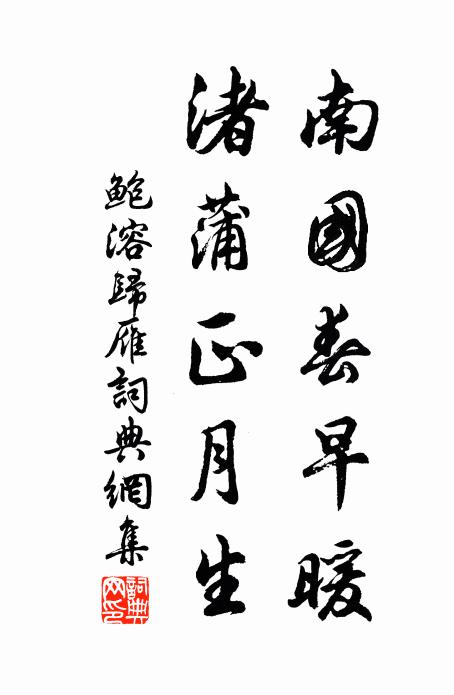 南國春早暖
渚蒲正月生
鮑溶歸雁詞典網集
詞典